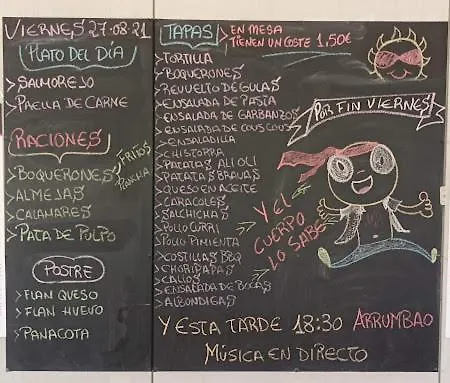 VIERNES 27·08·21
PLATO DEL DÍA
>SALMOREJO
>PAELLA DE CARNE
RACIONES
>BOQUERONES
FRITOS
PLANCHA
>ALMEJAS
>CALAMARES
>PATA DE PULPO
POSTRE
>FLAN QUESO
>FLAN HUEVO
>PANACOTA
TAPAS
>EN MESA
TIENEN UN COSTE 1,50€
>TORTILLA
>BOQUERONES
>REVUELTO DE GULAS
>ENSALADA DE PASTA
>ENSALADA DE GARBANZOS
>ENSALADA DE COUS COUS
>ENSALADILLA
>CHISTORRA
>PATATAS ALI OLI
>PATATAS BRAVAS
>QUESO EN ACEITE
>CARACOLES
>SALCHICHAS
>POLLO CURRI
>POLLO PIMIENTA
>COSTILLAS BBQ
>CHORIPAPAS
>CALLOS
>ENSALADA DE BOCAS
>ALBONDIGAS
POR FIN VIERNES
Y EL
CUERPO
LO SABE
Y ESTA TARDE 18:30 ARRUMBAO
MÚSICA EN DIRECTO